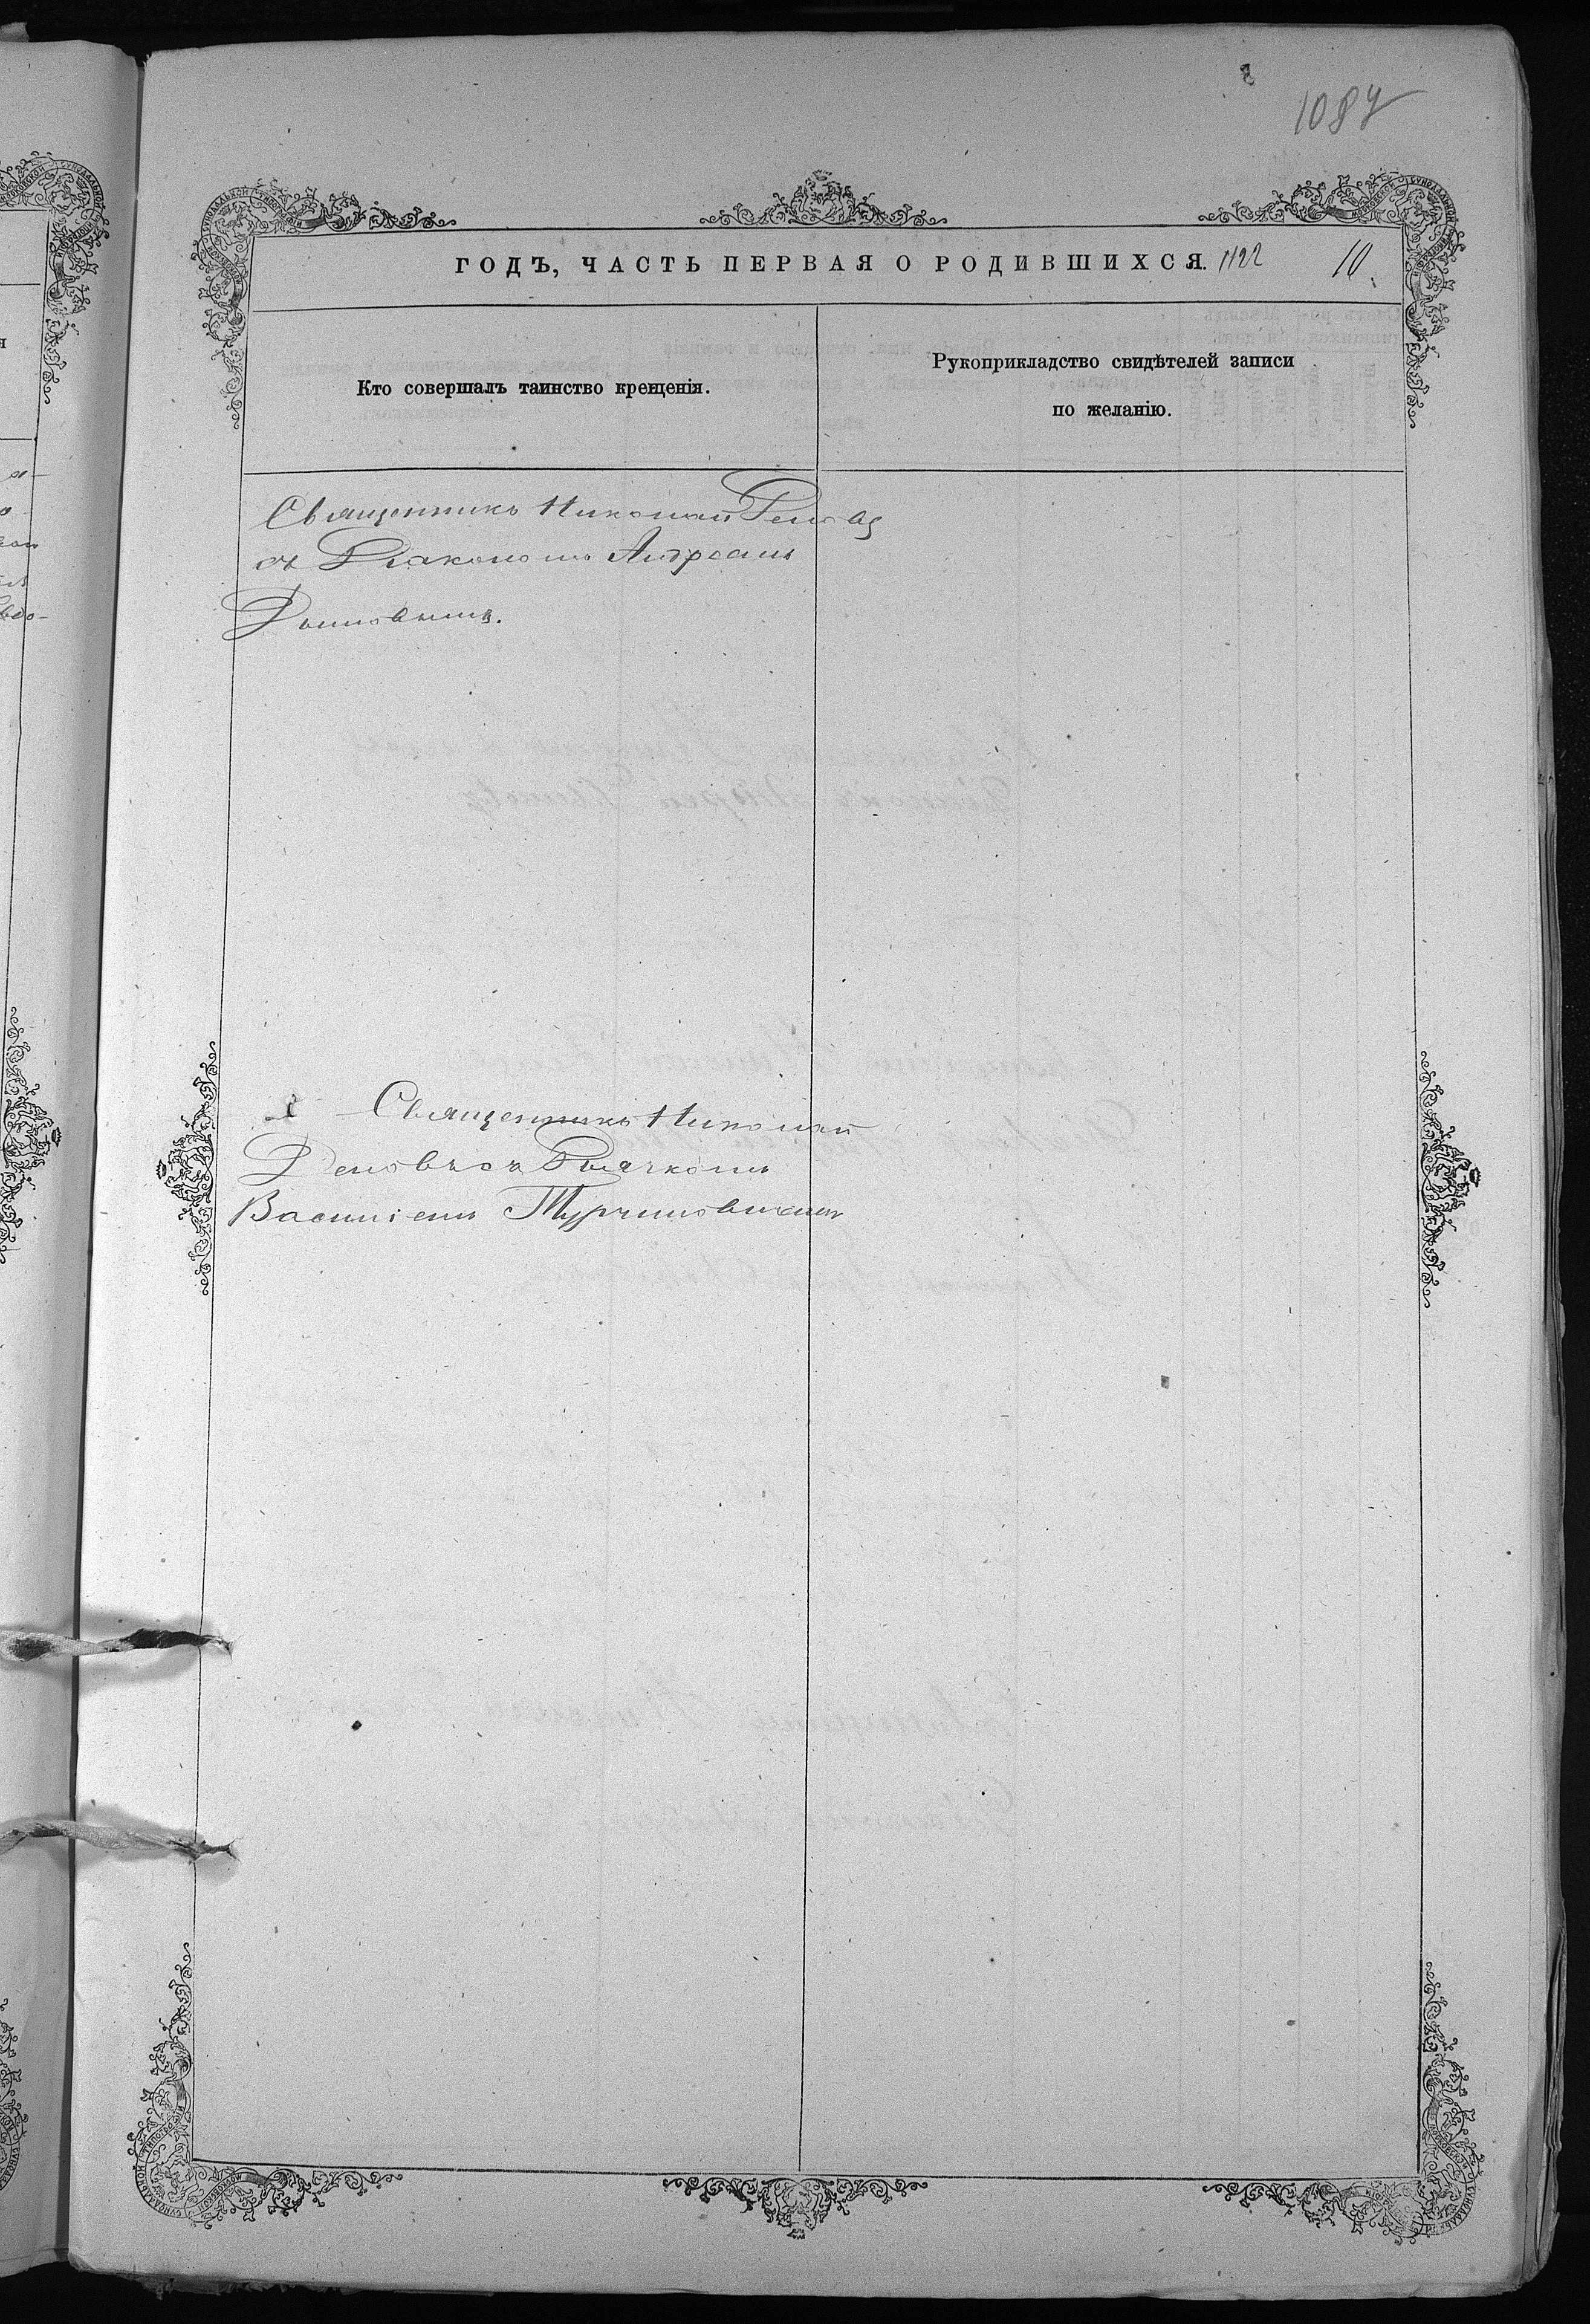 1087
ГОДЪ, ЧАСТЬ ПЕРВАЯ О РОДИВШИХСЯ. 1122 10.
Кто совершалъ таинство крещенія.
Рукоприкладство свидѣтелей записи
по желанію.
Священникъ Николай
съ Діакономъ Андреемъ
Священникъ Николай
съ Дьячкомъ
Василіемъ Турчиновичемъ